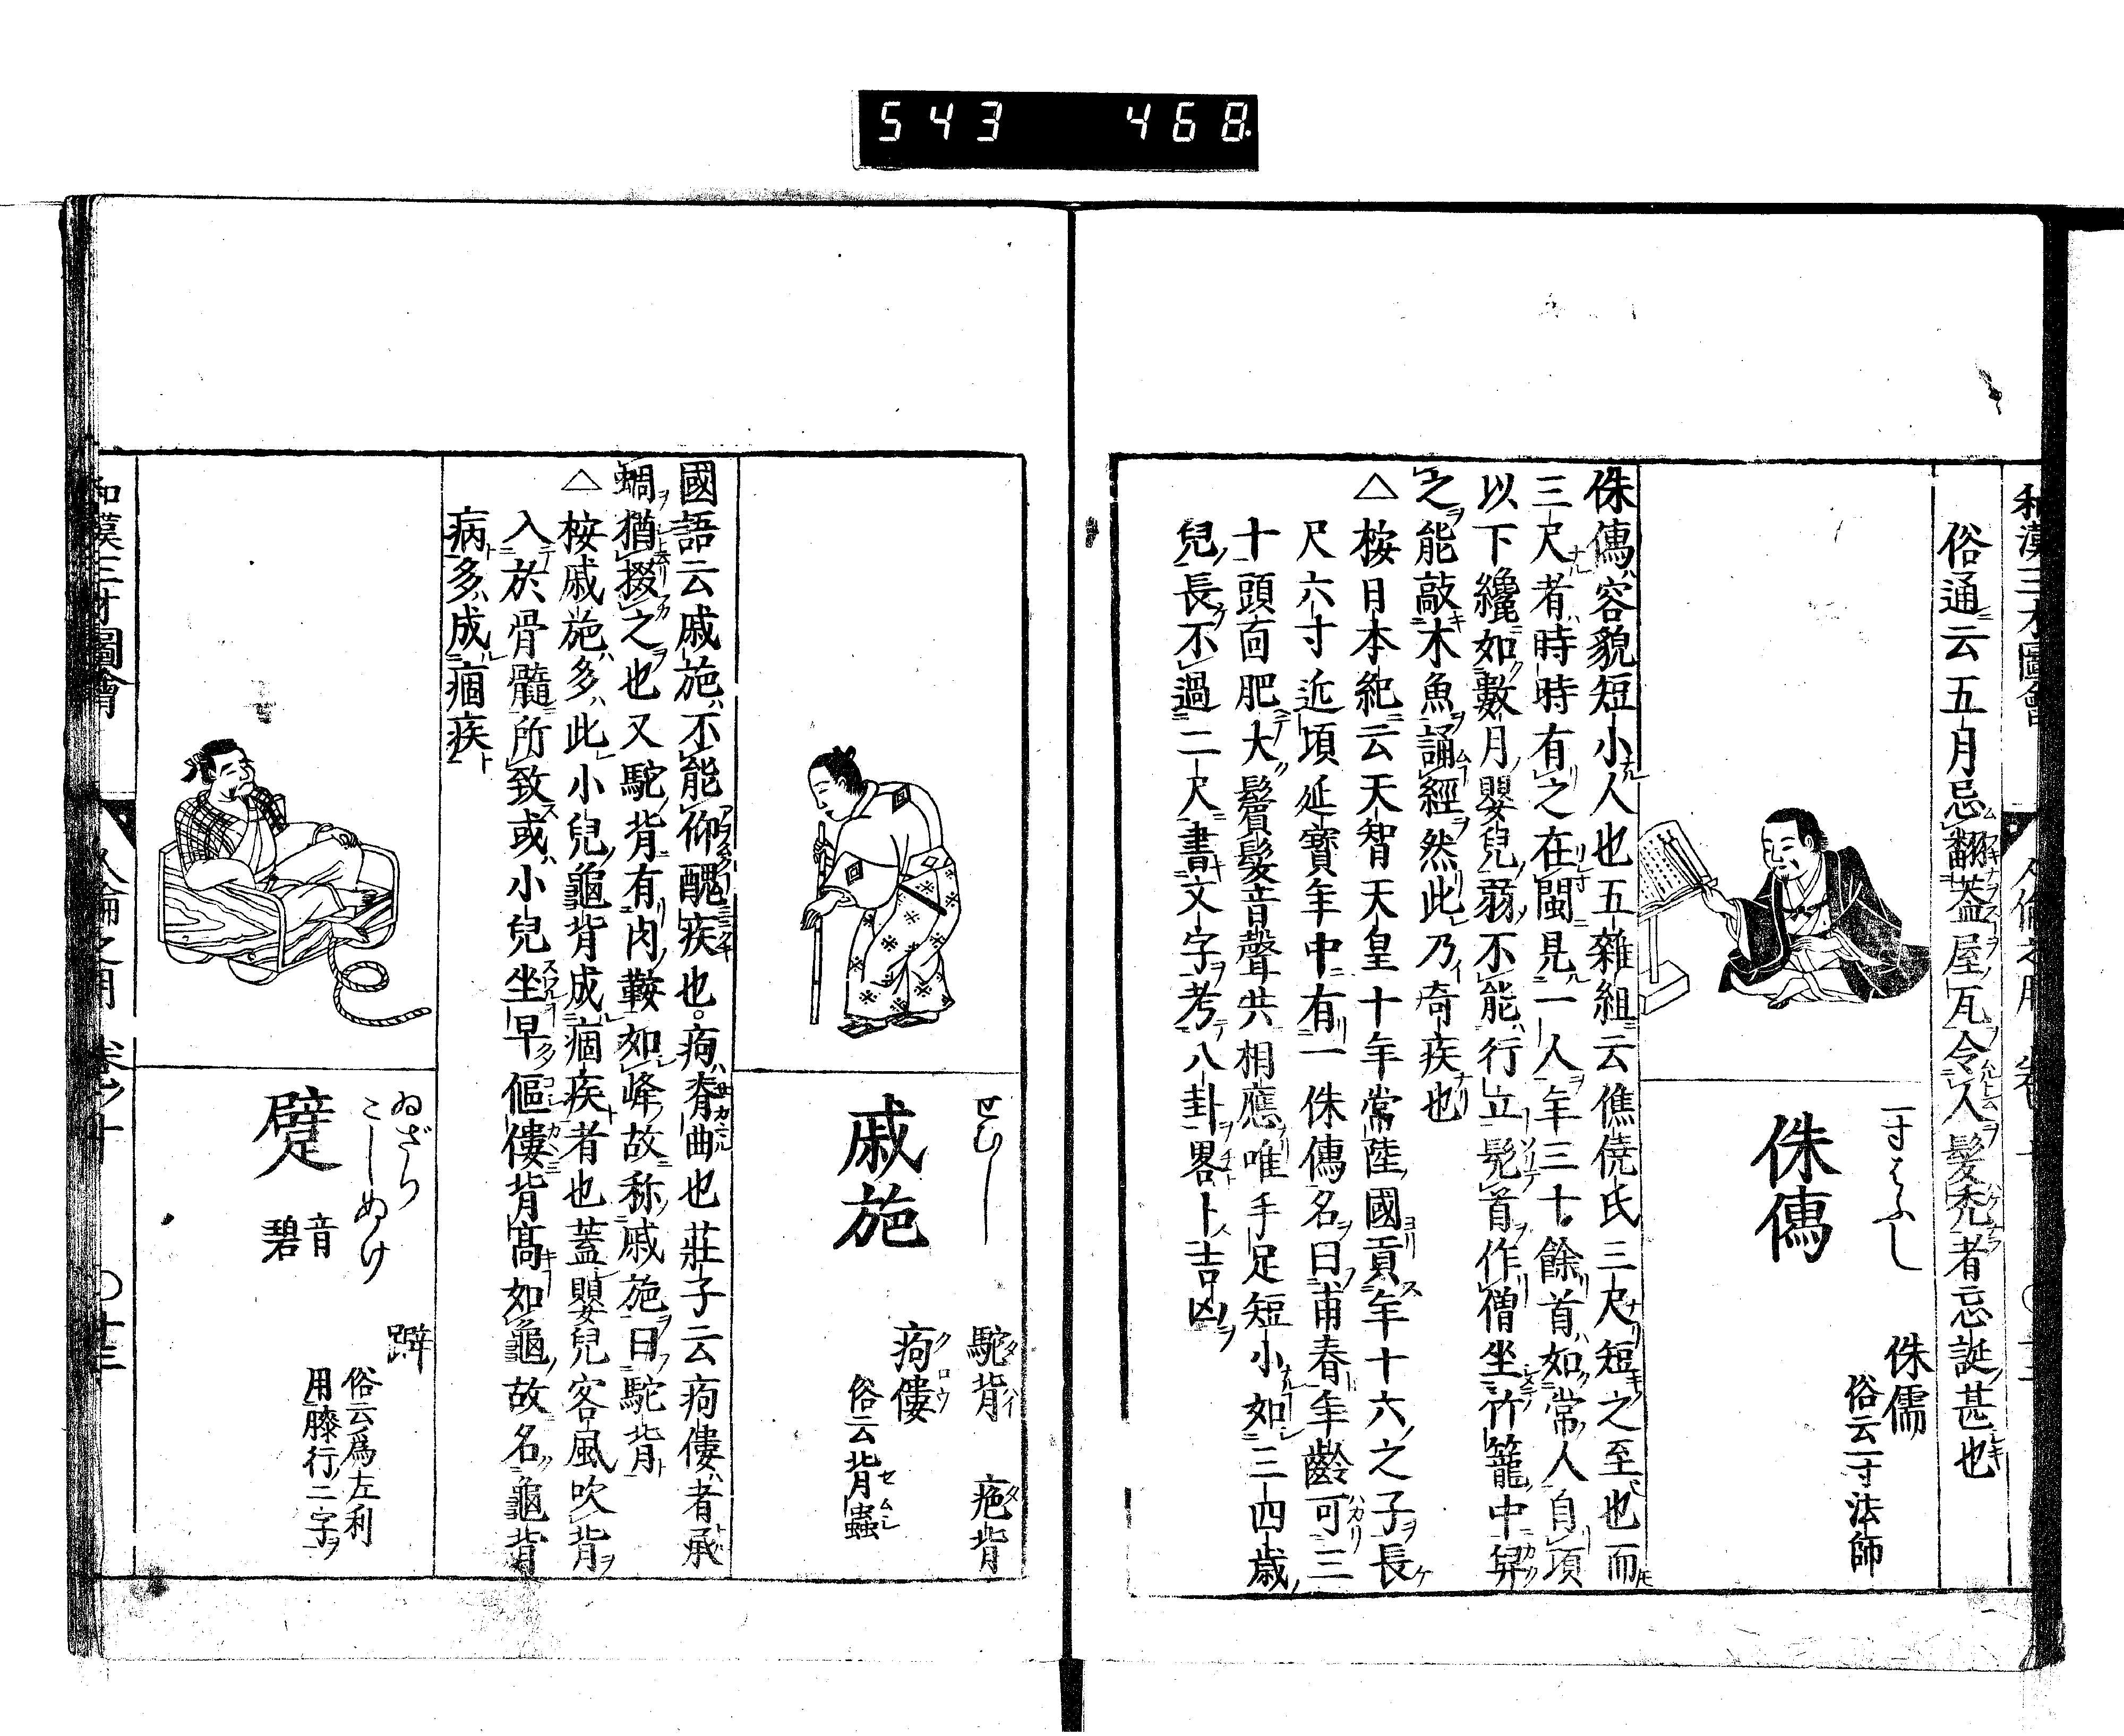 543 468
和漢三才圖會
人倫之用
俗通云五月忌翻葢屋瓦令人髮禿者忘誕甚也
一寸ぼふし
侏儒
侏㒧
俗云一寸法師
侏㒧容貌短小人也五雜組云僬僥氏三尺短之至也而
三尺者時時有之在閩見一人年三十餘首如常人自項
以下纔如數月嬰兒弱不能行立髠首作僧坐竹籠中舁
之能敲木魚誦經然此乃奇疾也
△桉日本紀云天智天皇十年常陸國貢年十六之子長
尺六寸近頃延寶年中有一侏㒧名曰甫春年齡可三
十頭面肥大鬢髮音聲共相應唯手足短小如三四歲
兒長不過二尺書文字考八卦畧卜吉凶
せむし
戚施
駝背 疤背
痀僂
俗云背蟲
國語云戚施不能仰醜疾也。痀脊曲也莊子云痀僂者承
蜩猶掇之也又駝背有肉鞍如峰故称戚施曰駝背
△桉戚施多此小兒龜背成痼疾者也蓋嬰兒客風吹背
入於骨髓所致或小兒坐早傴僂背高如龜故名龜背
病多成痼疾
ゐざり
こしぬけ
躄 音碧
躃
俗云爲左利
用膝行二字
和漢三才圖會 人倫之用 卷之十 〇十三